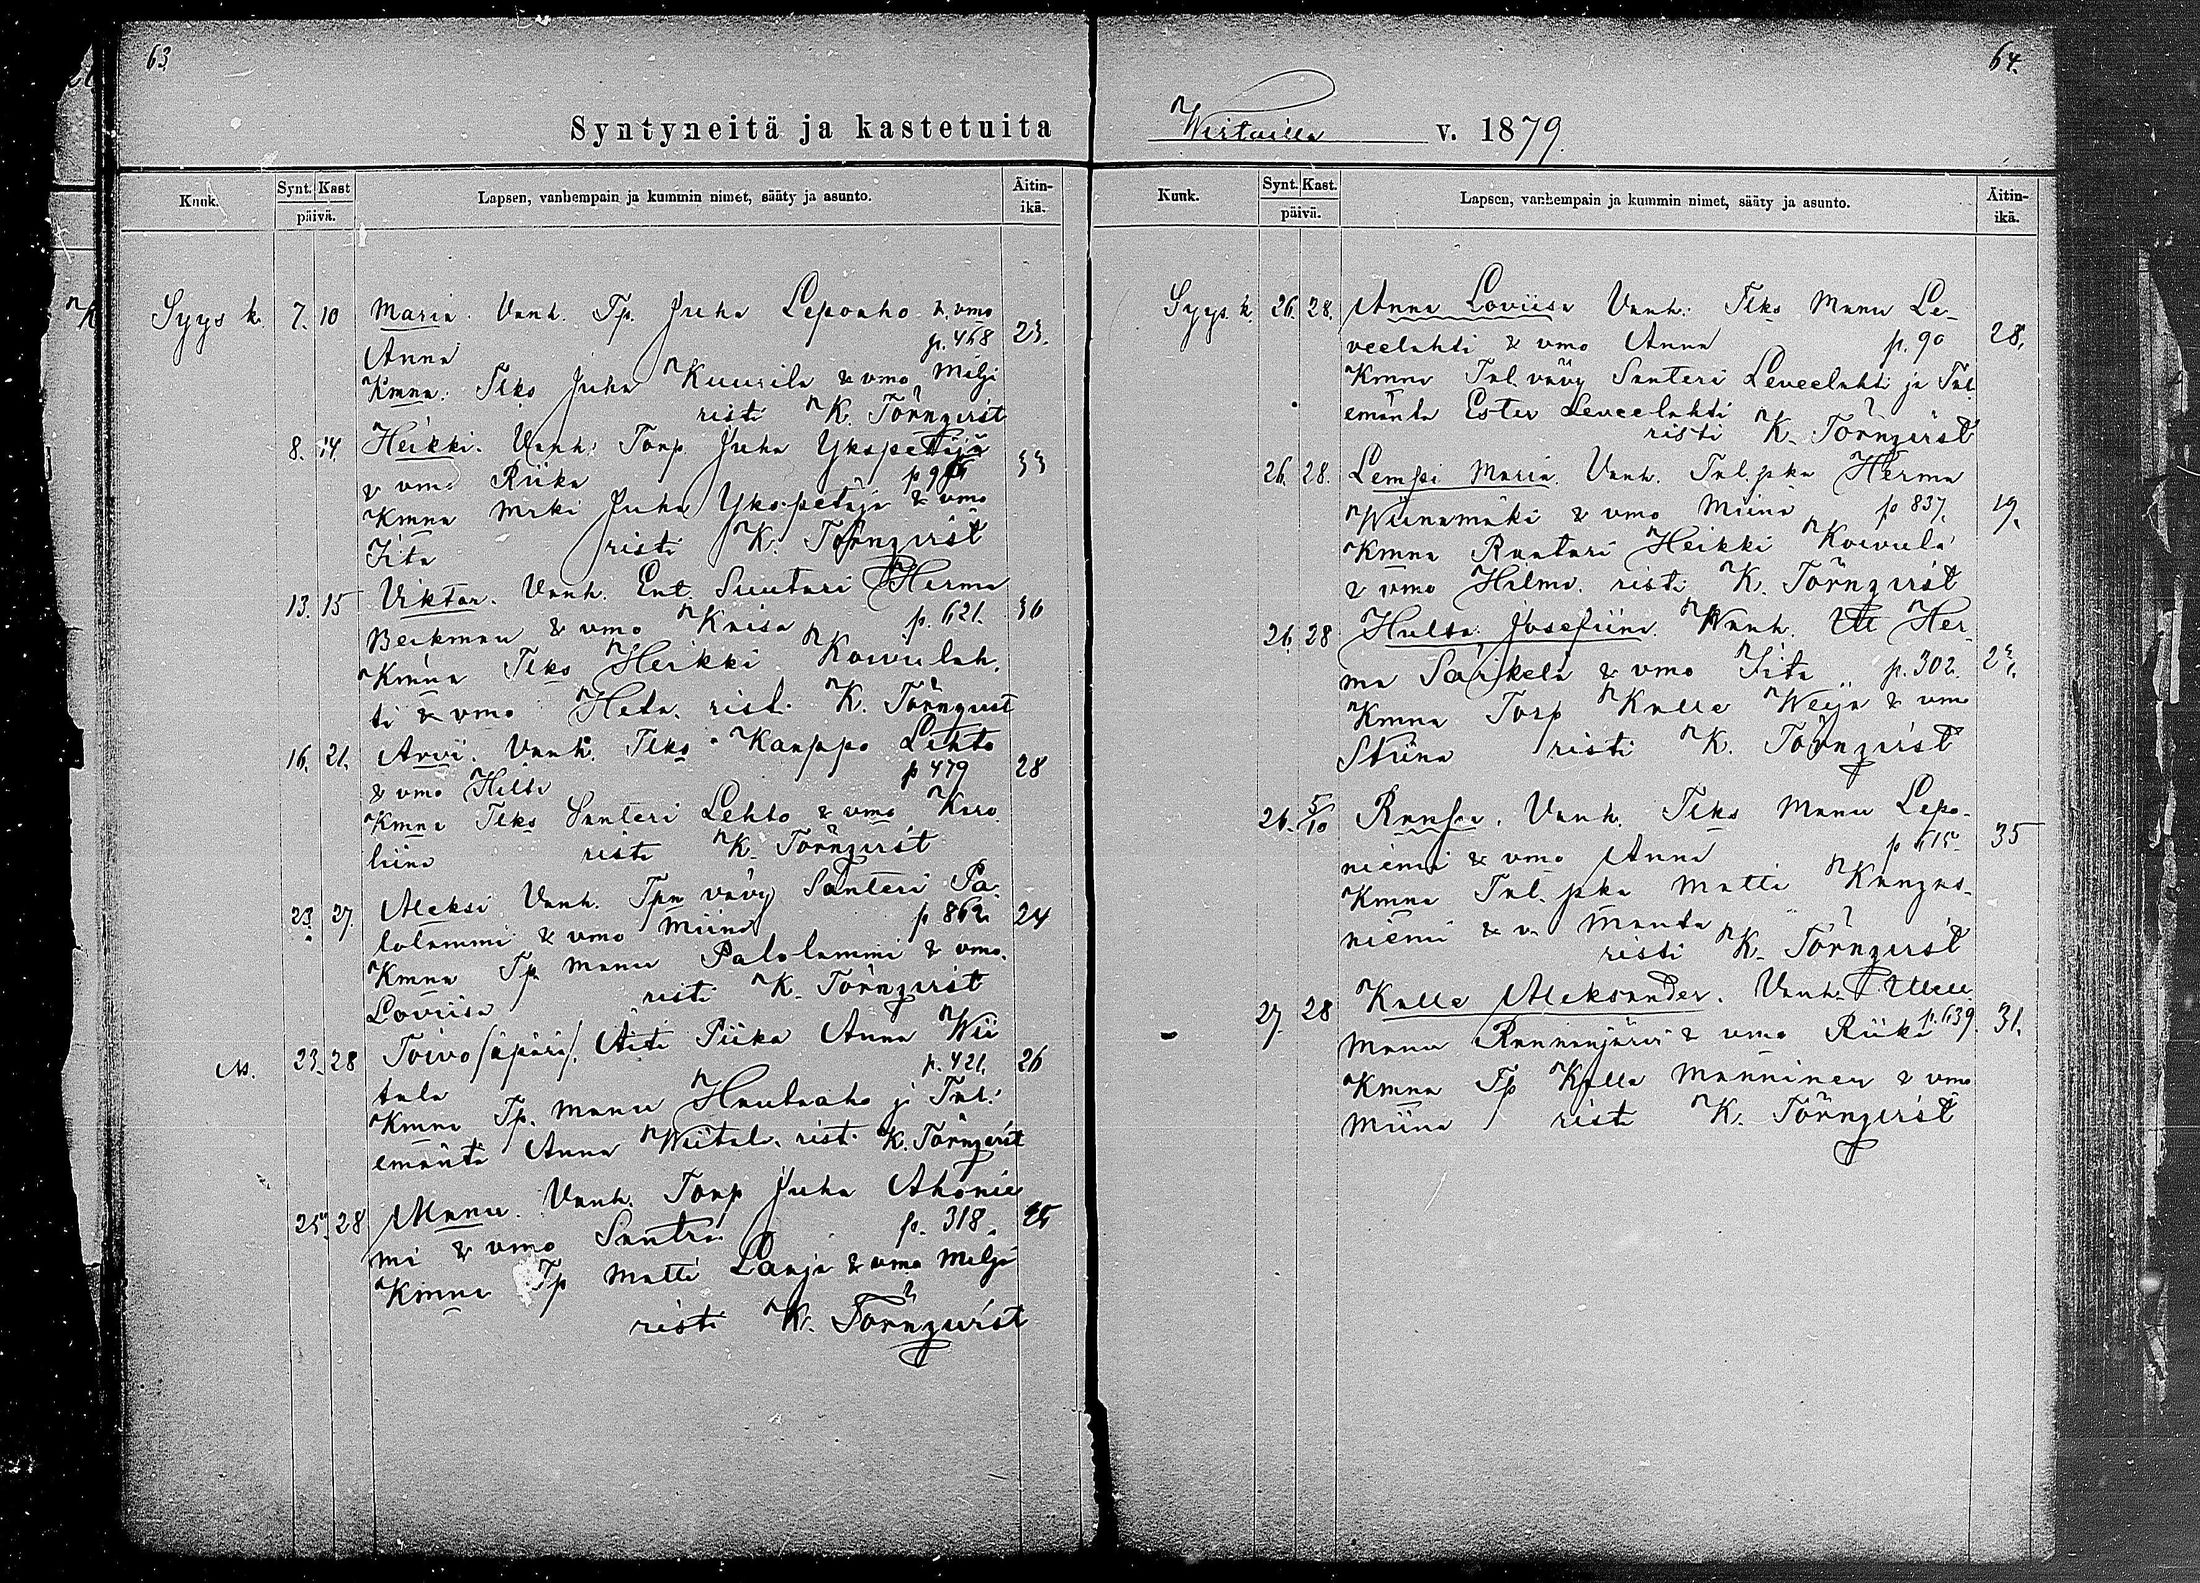 63
Syntyneitä ja kastetuita
Kuuk.
Synt. Kast
päivä.
Lapsen, vanhempain ja kummin nimet, sääty ja asunto.
Äitin-
ikä.
Syys k. 7. 10 Maria. Vanh. Tp. Juha Lepoaho & vmo
Anna p. 468 23.
Kmna: Tlks Juha Kuurila & vmo Milji
risti K. Törnqvist
8. 14. Heikki. Vanh: Torp Juha Ykspetäjä
& vmo Riika 33
Kmna Mrki Juha Ykspetäjä & vmo
Iita risti K. Törnqvist
13. 15 Viktor. Vanh. Ent. Suutari Herma
Beckman & vmo Kaisa p. 621. 36
Kmna Tlks Heikki Koivulah.
ti & vmo Heta. rist. K. Törnqvist
16. 21. Arvi. Vanh. Tlks Kaappo Lehto
& vmo Hilti p 479 28
Kmna Tlks Santeri Lehto & vmo Karo
liina risti K. Törnqvist
23. 27. Aleksi Vanh. Tpn vävy Santeri Pa
lolammi & vmo Miina p 862. 24
Kmna Tp. Manu Palolammi & vmo.
Loviisa risti K. Törnqvist
23. 28 Toivo (äpärä). Äiti Piika Anna Wii
tala p. 421. 26
Kmna Tp. Manu Hautaaho ja Tal.
emäntä Anna Wiitala. rist. K. Törnqvist
25. 28 Manu. Vanh. Torp Juha Ahonie
mi & vmo Santra p. 318.
Kmna Tp Matti Laaja & vmo Milji
risti K. Törnqvist
64.
Wirtailla v. 1879.
Kuuk.
Synt. Kast.
päivä.
Lapsen, vanhempain ja kummin nimet, sääty ja asunto.
Äitin-
ikä.
Syys k. 26. 28. Anna Loviisa Vanh: Tlks Manu Le-
veelahti & vmo Anna p. 90 28.
Kmna Tal. vävy Santeri Leveelahti ja Tal.
emäntä Ester Leveelahti
risti K. Törnqvist
26. 28. Lempi Maria. Vanh. Tal. pka Herma
Wiinamäki & vmo Miina p 837. 19.
Kmna Rantari Heikki Koivula
& vmo Hilma. risti K. Törnqvist
26. 28 Hulta Josefiina. Vanh. Her-
ma Särkelä & vmo Iita p. 302.
Kmna Torp Kalle Weija & vmo
Stiina risti K. Törnqvist
26. 5/10 Ranssu. Vanh. Tlks Manu Lepo-
niemi & vmo Anna p 615 35
Kmna Tal. pka Matti Kangas-
niemi & v. Manta
risti K. Törnqvist
27. 28 Kalle Aleksander. Vanh.
Manu Rannanjärvi & vmo Riika p. 639. 31.
Kmna Tp Kalle Manninen & vmo
Miina risti K. Törnqvist